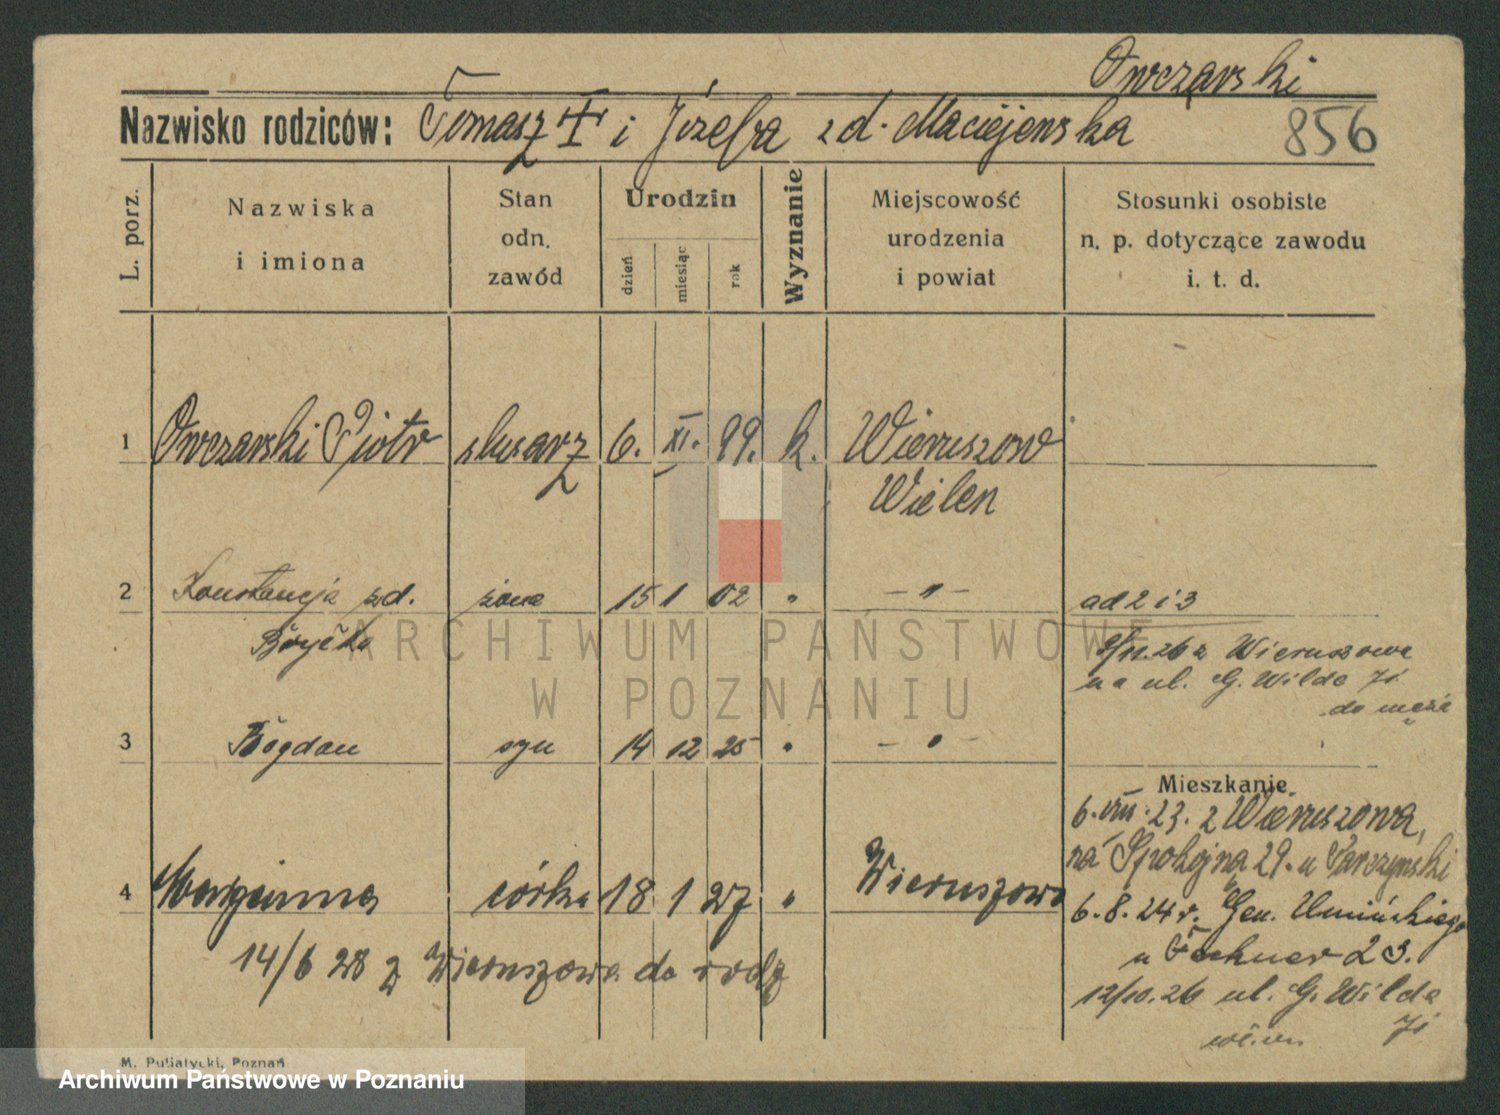 Owczarski
Nazwisko rodziców: Tomasz † i Józefa zd. Maciejewska 856
L. porz.
Nazwiska
i imiona
Stan
odn.
zawód
Urodzin
dzień
miesiąc
rok
Wyznanie
Miejscowość
urodzenia
i powiat
Stosunki osobiste
n. p. dotyczące zawodu
i. t. d.
1 Owczarski Piotr slusarz 6. XI. 99. k. Wieruszow
Wielen
2 Konstancja zd. żona 15 1 02 " — " — ad 2 i 3
ARCHIWUM PAŃSTWOWE
W POZNANIU
26 z Wieruszowa
na ul. G. Wilda 71
do męża
3 Bogdan syn 14 12 25 " — " —
Mieszkanie
6. VIII. 23. z Wieruszowa,
na Spokojna 29. u Tarczynski
4 córka 18 1 27 " Wieruszowo
6. 8. 24 r. Gen. Umińskiego
u 23.
14/6 28 z Wieruszowa do rodz
12/10. 26 ul. G. Wilda
71
M. Pujiatycki, Poznań
Archiwum Państwowe w Poznaniu